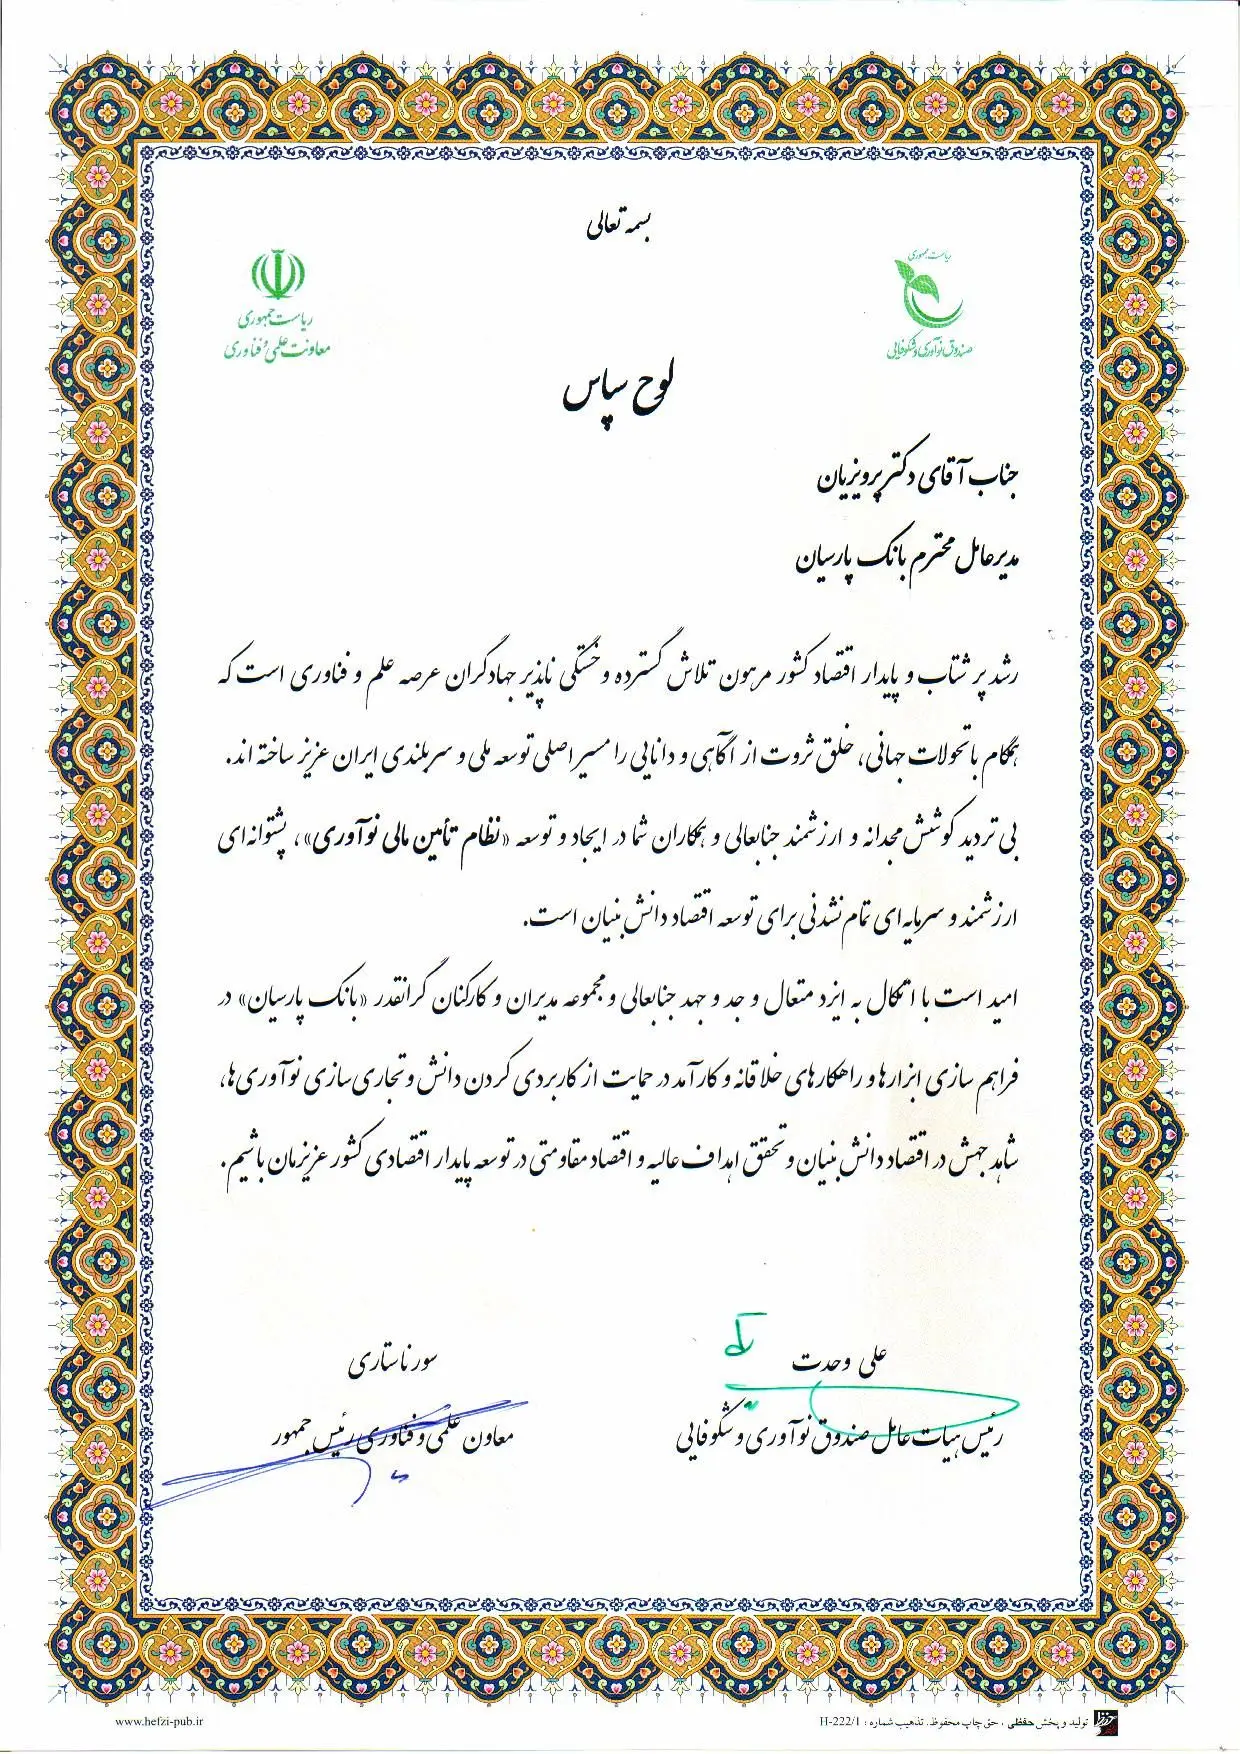 بسمه تعالی
ریاست جمهوری
صندوق نوآوری و شکوفایی
ریاست جمهوری
معاونت علمی و فناوری
لوح سپاس
جناب آقای دکتر پرویزیان
مدیرعامل محترم بانک پارسیان
رشد پر شتاب و پایدار اقتصاد کشور مرهون تلاش گسترده و خستگی ناپذیر جهادگران عرصه علم و فناوری است که
همگام با تحولات جهانی، خلق ثروت از آگاهی و دانایی را مسیر اصلی توسعه ملی و سربلندی ایران عزیز ساخته اند.
بی تردید کوشش مجدانه و ارزشمند جنابعالی و همکاران شما در ایجاد و توسعه «نظام تأمین مالی نوآوری»، پشتوانه‌ای
ارزشمند و سرمایه‌ای تمام نشدنی برای توسعه اقتصاد دانش بنیان است.
امید است با اتکال به ایزد متعال و جد و جهد جنابعالی و مجموعه مدیران و کارکنان گرانقدر «بانک پارسیان» در
فراهم سازی ابزارها و راهکارهای خلاقانه و کارآمد در حمایت از کاربردی کردن دانش و تجاری سازی نوآوری‌ها،
شاهد جهش در اقتصاد دانش بنیان و تحقق اهداف عالیه و اقتصاد مقاومتی در توسعه پایدار اقتصادی کشور عزیزمان باشیم.
علی وحدت
رئیس هیات عامل صندوق نوآوری و شکوفایی
سورنا ستاری
معاون علمی و فناوری رئیس جمهور
تولید و پخش حفظی ، حق چاپ محفوظ. تذهیب شماره : H-222/1
www.hefzi-pub.ir